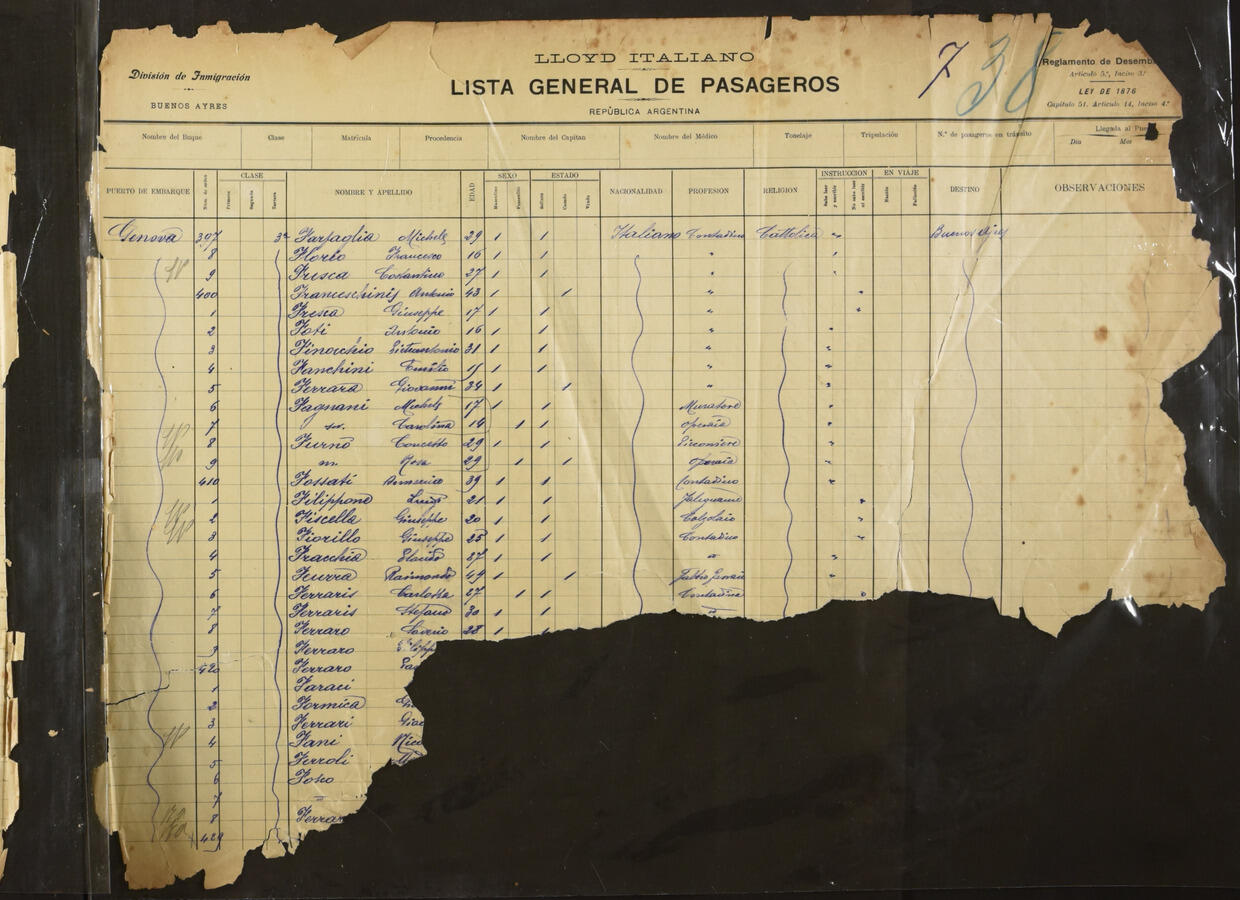 LLOYD ITALIANO
División de Inmigración
BUENOS AYRES
LISTA GENERAL DE PASAGEROS
REPÚBLICA ARGENTINA
7 38
Reglamento de Desemb
Artículo 5.º, Inciso 3.º
LEY DE 1876
Capítulo 51. Artículo 14, Inciso 4.º
Nombre del Buque Clase Matrícula Procedencia Nombre del Capitan Nombre del Médico Tonelaje Tripulación N.º de pasageros en tránsito Llegada al Pue
Dia Mes
PUERTO DE EMBARQUE Núm. de orden CLASE NOMBRE Y APELLIDO EDAD SEXO ESTADO NACIONALIDAD PROFESION RELIGION INSTRUCCION EN VIAJE DESTINO OBSERVACIONES
Primera Segunda Tercera Masculino Femenino Soltero Casado Viudo Sabe leer y escribir No sabe leer ni escribir Nacido Fallecido
Genova 397 3ª Farfaglia Michele 29 1 1 Italiano Contadino Cattolica " Buenos Ayres
8 Florio Francesco 16 1 1 " "
9 Fresca Costantino 27 1 1 " "
400 Franceschinis Antonio 43 1 1 " "
1 Fresca Giuseppe 17 1 1 " "
2 Foti Antonio 16 1 1 " "
3 Finocchio 31 1 1 " "
4 Fanchini Emilio 15 1 1 " "
5 Ferrara Giovanni 34 1 1 " "
6 Fagnani Michele 17 1 1 Muratore "
7 Carolina 14 1 1 operaia "
8 Furno Concetto 29 1 1 "
9 Rosa 29 1 1 operaia "
410 Fossati Armerico 39 1 1 Contadino "
1 Filippone Luigi 21 1 1 Falegname "
2 Fiscella Giuseppe 20 1 1 Calzolaio "
3 Fiorillo Giuseppe 25 1 1 Contadino "
4 Fracchia 37 1 1 " "
5 Raimondo 49 1 1 "
6 Ferraris Carlotta 27 1 1 Contadina "
7 Ferraris Stefano 30 1 1 "
8 Ferraro Saverio 28 1
9 Ferraro
420 Ferraro
1 Faraci
2 Formica
3 Ferrari Giac
4 Fani Nico
5 Ferroli
6 Fosco
7 "
8 Ferrar
429